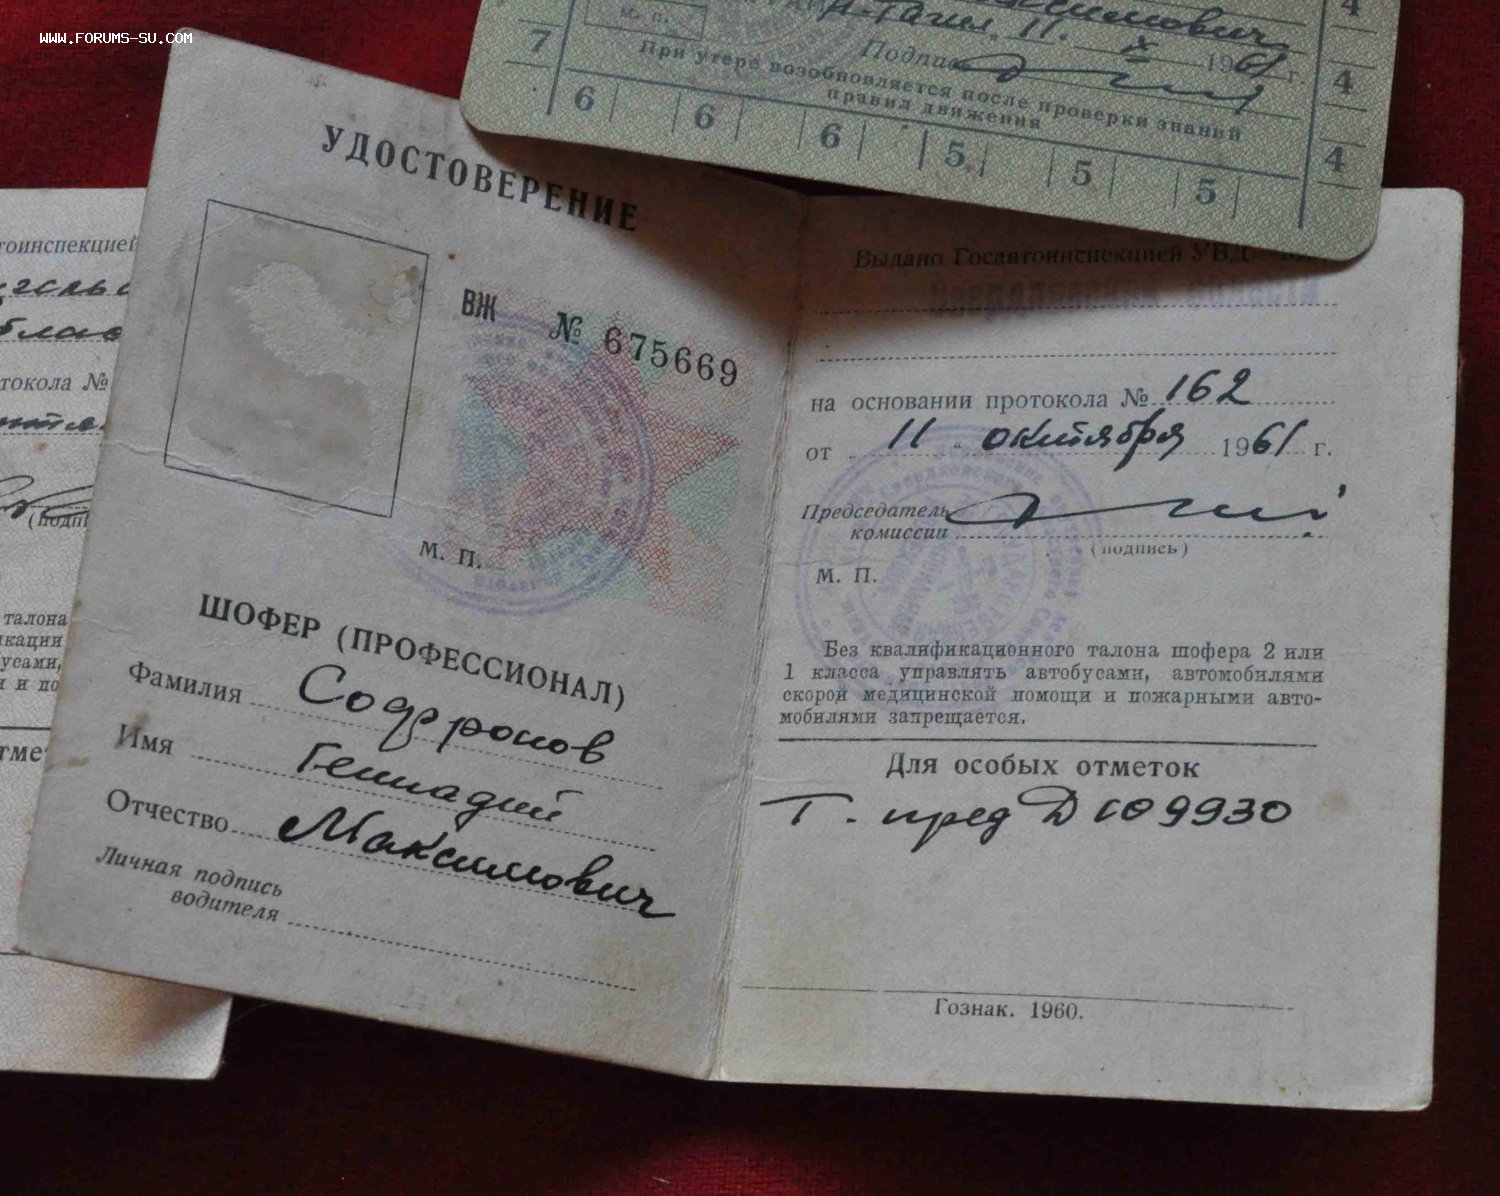 WWW.FORUMS-SU.COM
Н-Тагил 11. X 1961 г.
М. П.
Подпись
При утере возобновляется после проверки знаний
правил движения
7 6 6 6 5 5 5 4 4 4
УДОСТОВЕРЕНИЕ
ВЖ № 675669
М. П.
ШОФЕР (ПРОФЕССИОНАЛ)
Фамилия Софронов
Имя Геннадий
Отчество Максимович
Личная подпись
водителя
Выдано Госавтоинспекцией УВД
на основании протокола № 162
от „ 11 “ октября 1961 г.
Председатель
комиссии
(подпись)
М. П.
Без квалификационного талона шофера 2 или
1 класса управлять автобусами, автомобилями
скорой медицинской помощи и пожарными авто-
мобилями запрещается.
Для особых отметок
Т. пред
Гознак. 1960.
тоинспекцией
токола №
талона